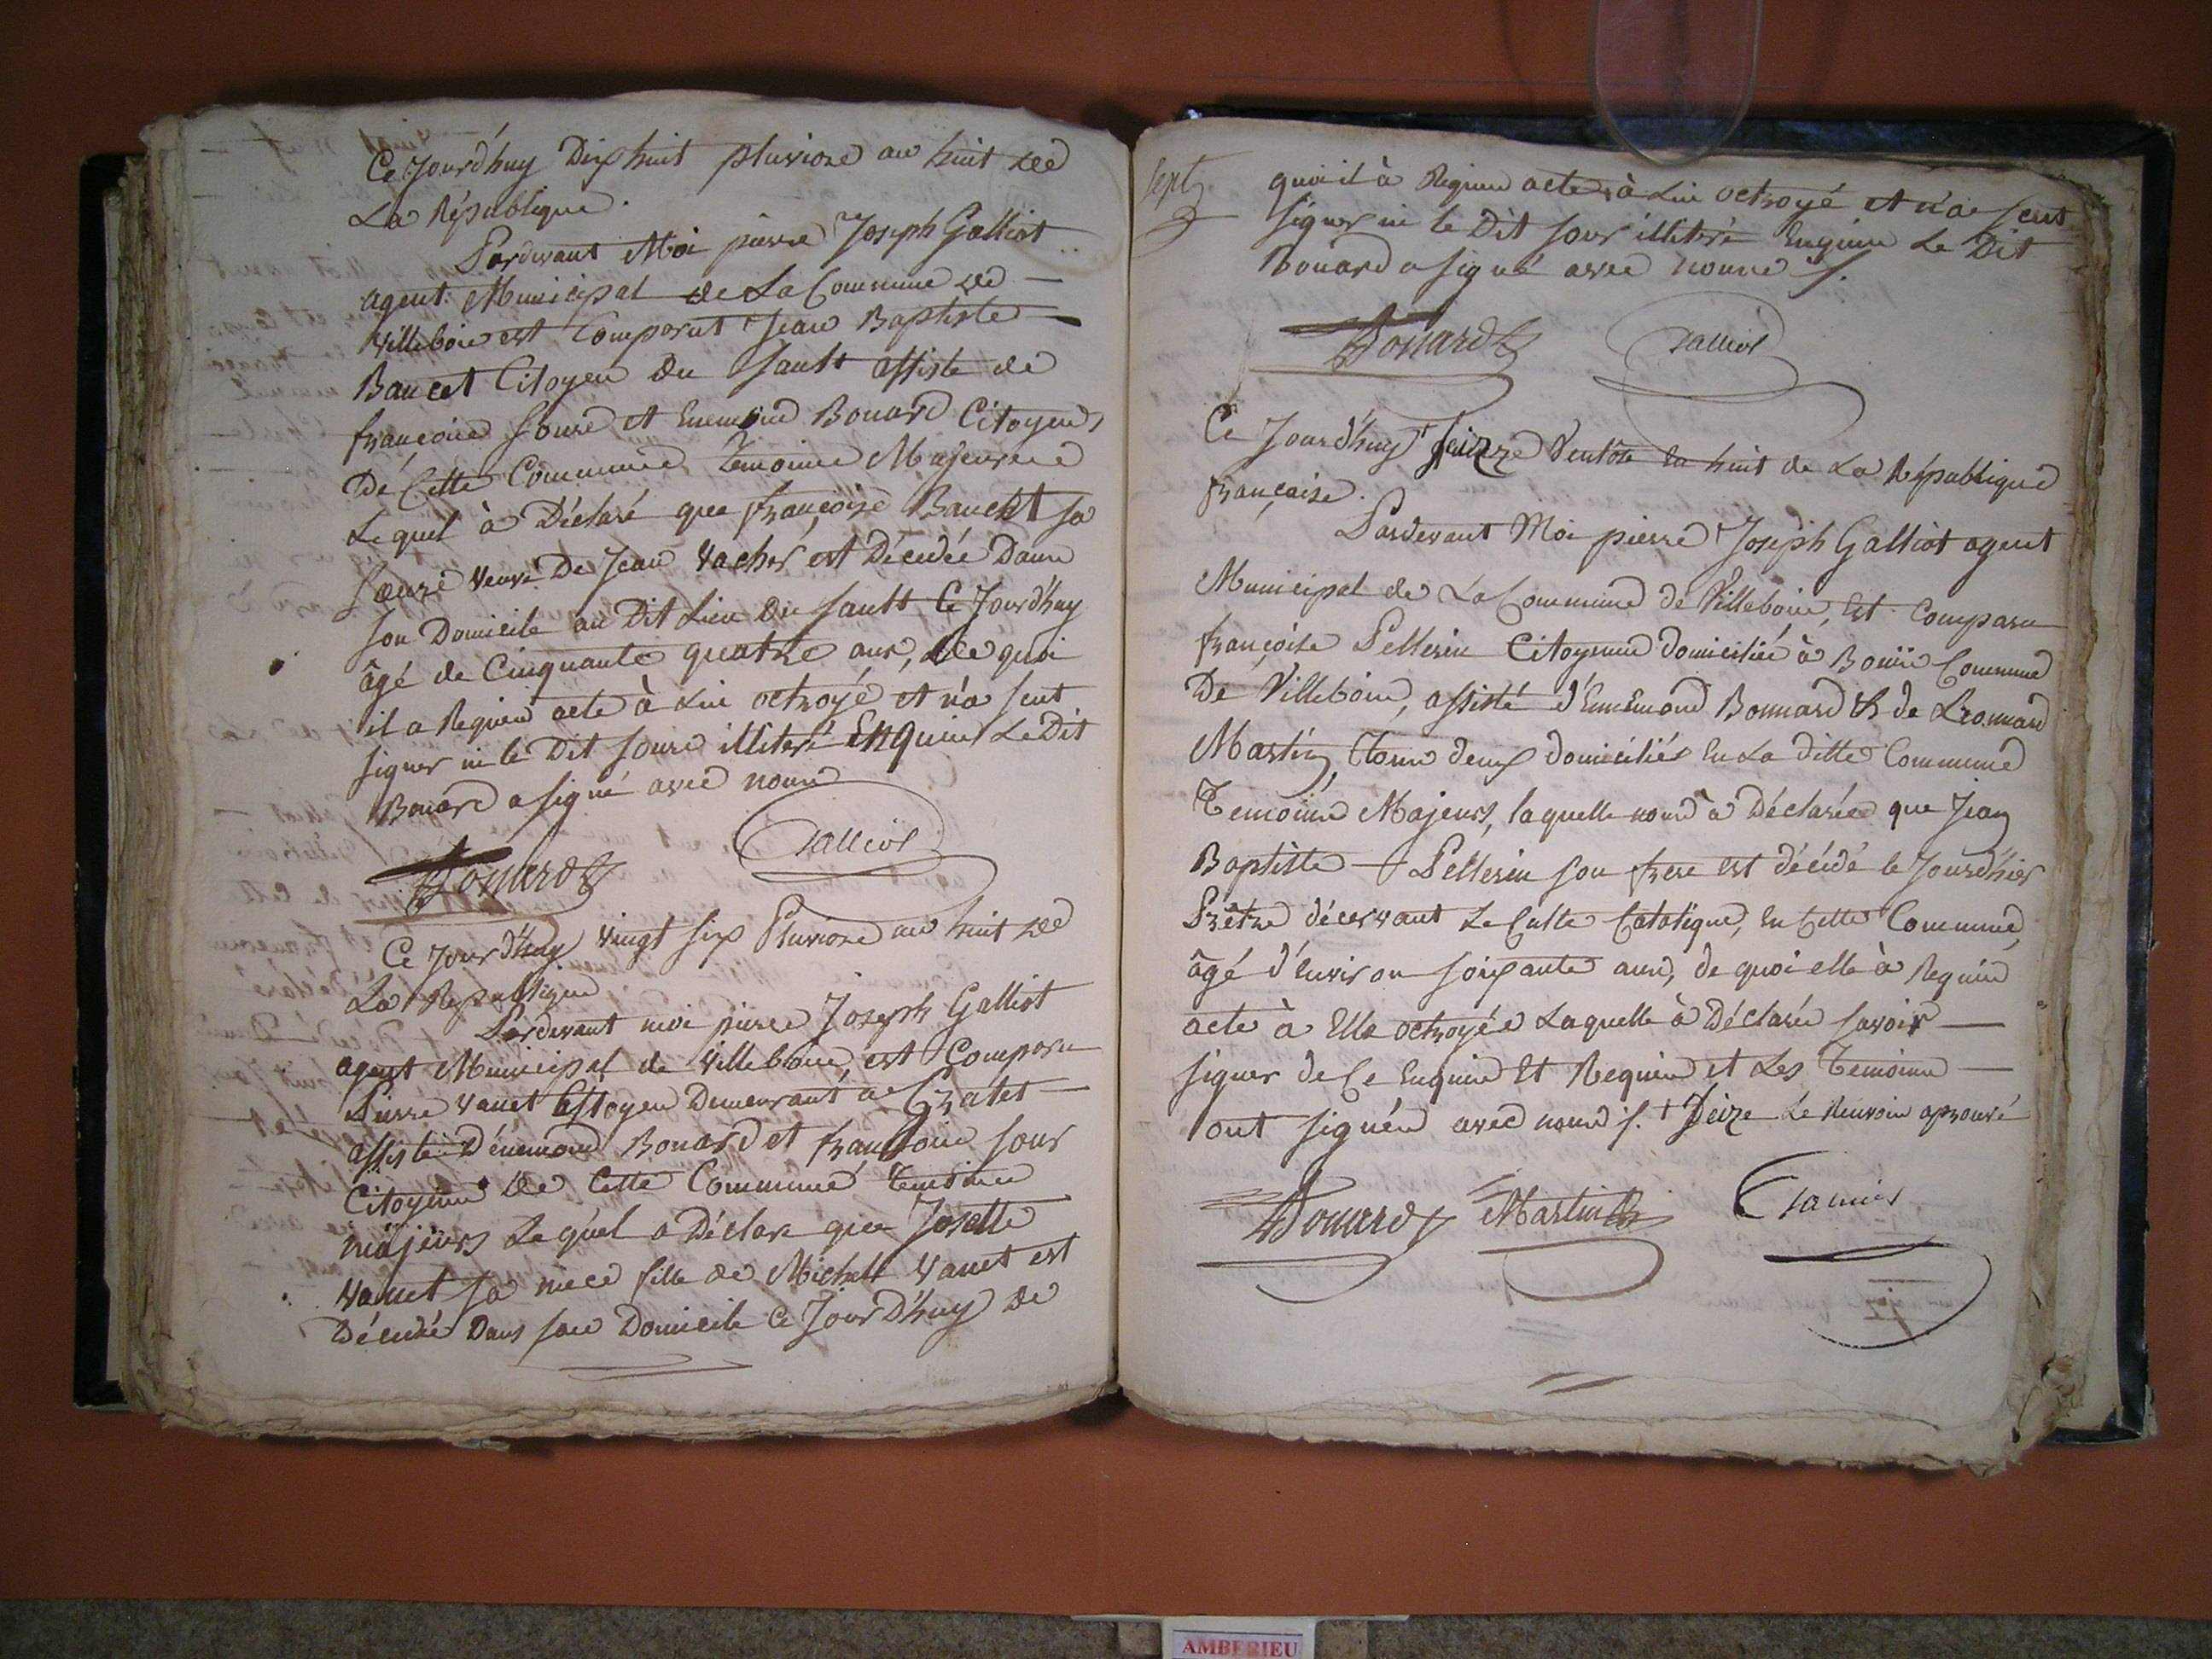 Ce Jourd'huy Dix huit pluviose an huit de
La République.
Pardevant Moi pierre Joseph Galliot
agent Municipal de La Commune de
villeboie est Comparut Jean Baptiste
Baucet Citoyen du Sault assisté de
françoise Soure et Enemond Bouard Citoyens
De Cette Commune Temoins Majeure
Lequel à Déclaré que françoise Baucet sa
soeure veuve De Jean Vacher est Décédée Dans
son Domicile au Dit Lieu du Sault Ce Jourd'huy
âgé de Cinquante quatre ans, de quoi
il a Requis acte à Lui octroyé et n'a seut
signer ni le Dit soure illiteré Enquis Le Dit
Bouard a signé avec nous
Bonard Galliot
Ce Jourd'huy vingt six Pluviose an huit de
La République
Pardevant moi pierre Joseph Galliot
agent Municipal de villeboie, est Comparu
Pierre vanet Citoyen Demeurant a Gratet
assisté D'énemond Bouard et françoie sour
Citoyens de Cette Commune temoins
majeurs Lequel a Déclaré que Josette
vanet sa niece fille de Michell vanet est
Décédée Dans son Domicile Ce Jourd'huy de
sept
quoi il à Requis acte à Lui octroyé et n'a seut
signer ni le Dit sour illiteré Enquis Le Dit
Bouard a signé avec nous /.
Bonard Galliot
Ce Jourd'huy † Seizze Ventôse En huit de La République
française.
Pardevant Moi pierre Joseph Galliot agent
Municipal de La Commune de Villeboie, Est Comparu
françoise Pellerin Citoyenne domiciliée à Bouïs Commune
De Villeboie, assisté d'Ennemond Bonnard & de Leonnard
Martin, Tous deux domiciliés En La ditte Commune
Temoins Majeurs, laquelle nous à Déclarée que Jean
Baptiste Pellerin son frere est décédé le Jourd'hier
Prêtre décervant Le Culte Catolique, En Cette Commune,
âgé d'Environ soixante ans, de quoi elle à Requis
acte à Elle octroyée Laquelle à Déclarée savoir
signer de Ce Enquise Et Requise et Les Temoins
ont signés avec nous /. † Seize Le Renvoie aprouvé
Bonard Martin Galliot
AMBERIEU